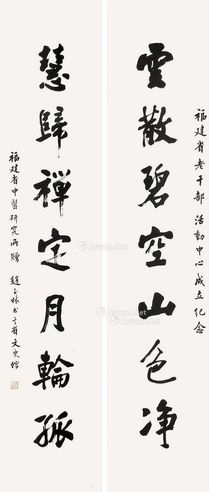 福建省老干部活动中心成立纪念
雲散碧空山色净
慧歸禪定月輪孤
福建省中醫研究所贈
趙玉林书于省文史馆